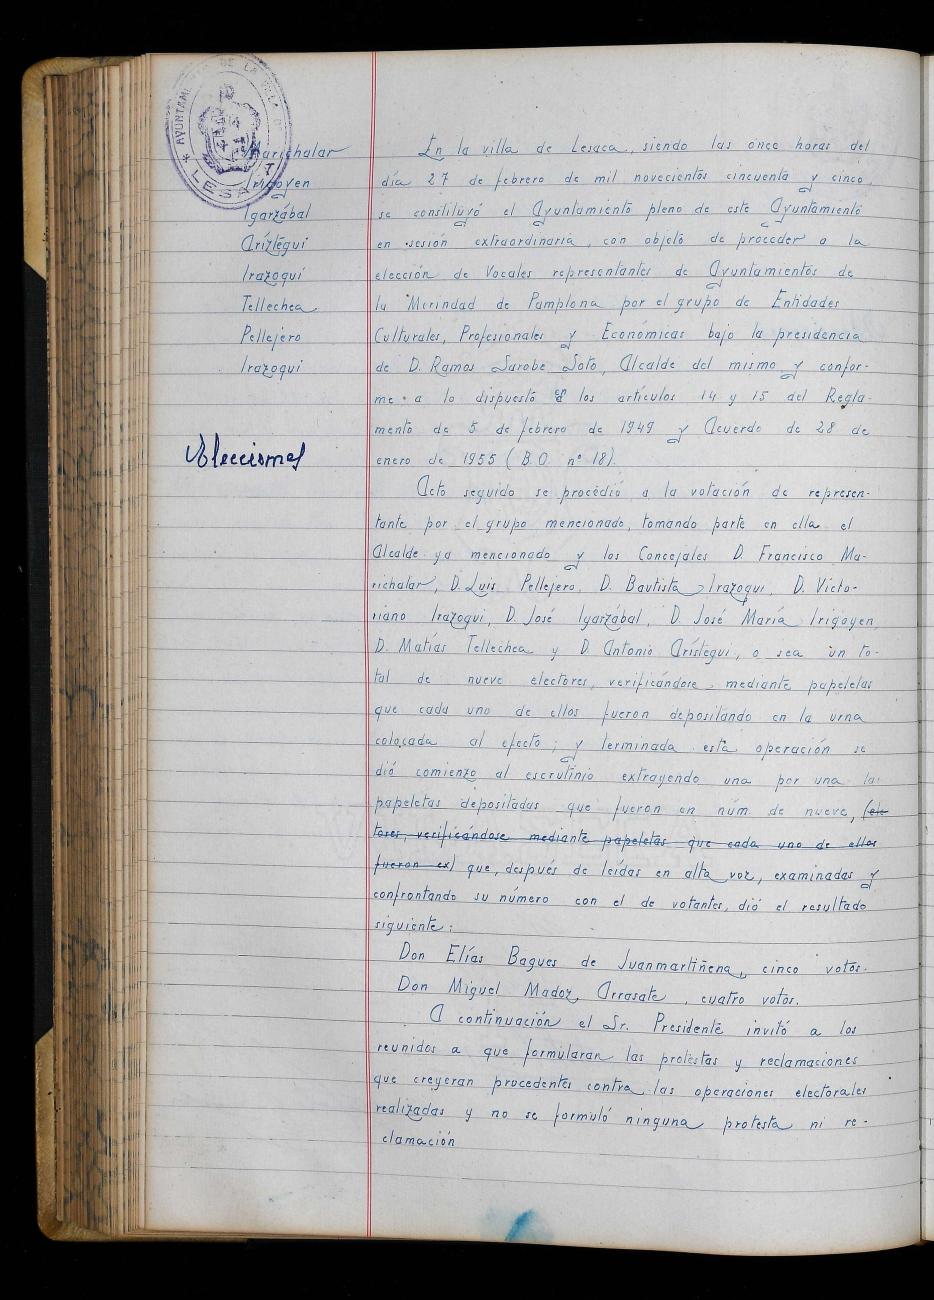 AYUNTAMIENTO DE LA VILLA DE
LESACA
Marichalar
Irigoyen
Igarzábal
Aríztegui
Irazoqui
Tellechea
Pellejero
Irazoqui
Elecciones
En la villa de Lesaca, siendo las once horas del
día 27 de febrero de mil novecientos cincuenta y cinco,
se constituyó el Ayuntamiento pleno de este Ayuntamiento
en sesión extraordinaria, con objeto de proceder a la
elección de Vocales representantes de Ayuntamientos de
la Merindad de Pamplona por el grupo de Entidades
Culturales, Profesionales y Económicas bajo la presidencia
de D. Ramos Sarobe Soto, Alcalde del mismo y confor-
me a lo dispuesto en los artículos 14 y 15 del Regla-
mento de 5 de febrero de 1949 y Acuerdo de 28 de
enero de 1955 (B.O. nº 18).
Acto seguido se procedió a la votación de represen-
tante por el grupo mencionado, tomando parte en ella el
Alcalde ya mencionado y los Concejales D. Francisco Ma-
richalar, D. Luis Pellejero, D. Bautista Irazoqui, D. Victo-
riano Irazoqui, D. José Igarzábal, D. José María Irigoyen,
D. Matías Tellechea y D. Antonio Arístegui, o sea un to-
tal de nueve electores, verificándose mediante papeletas
que cada uno de ellos fueron depositando en la urna
colocada al efecto; y terminada esta operación se
dió comienzo al escrutinio extrayendo una por una las
papeletas depositadas que fueron en núm. de nueve, (elc
tores, verificándose mediante papeletas que cada uno de ellos
fueron ex) que, después de leídas en alta voz, examinadas y
confrontando su número con el de votantes, dió el resultado
siguiente:
Don Elías Bagues de Juanmartiñena, cinco votos.
Don Miguel Madoz Arrasate, cuatro votos.
A continuación el Sr. Presidente invitó a los
reunidos a que formularan las protestas y reclamaciones
que creyeran procedentes contra las operaciones electorales
realizadas y no se formuló ninguna protesta ni re-
clamación